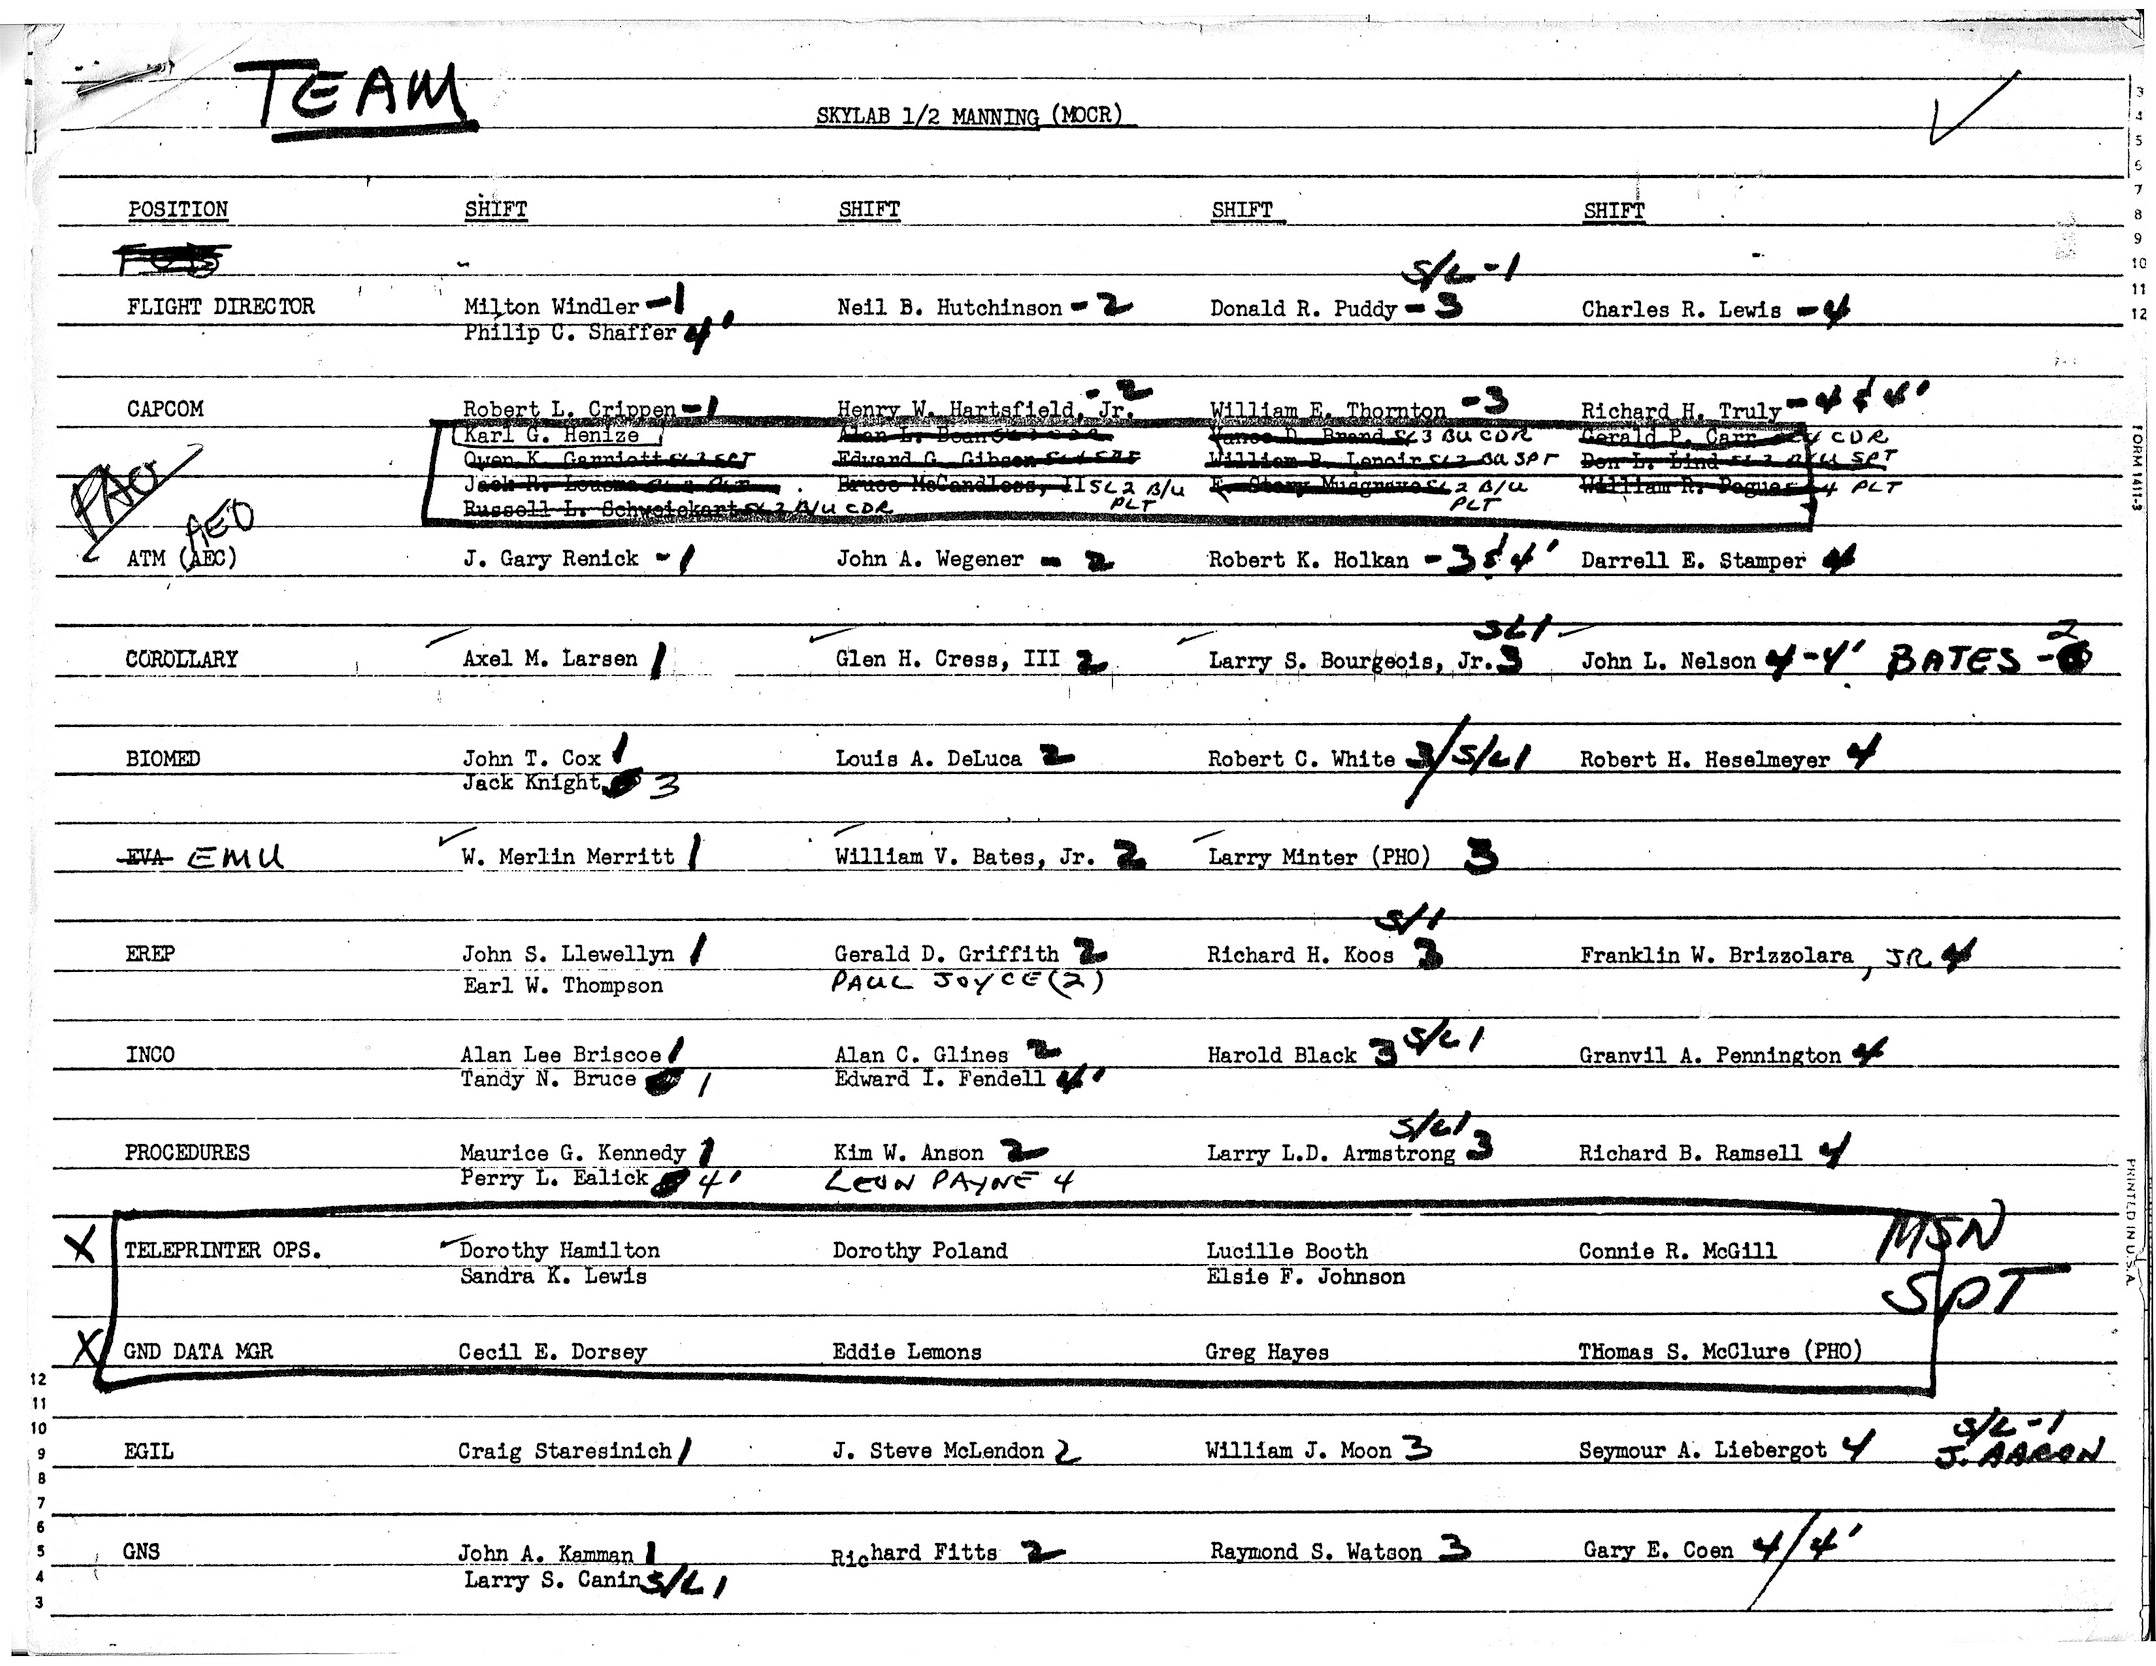 TEAM
SKYLAB 1/2 MANNING (MOCR)
POSITION SHIFT SHIFT SHIFT SHIFT
S/L-1
FLIGHT DIRECTOR Milton Windler -1 Neil B. Hutchinson - 2 Donald R. Puddy - 3 Charles R. Lewis - 4
Philip C. Shaffer 4'
CAPCOM Robert L. Crippen -1 Henry W. Hartsfield, Jr. -2 William E. Thornton -3 Richard H. Truly - 4 & 4'
Karl G. Henize Alan L. Bean Vance D. Brand SL3 BU CDR Gerald P. Carr SL4 CDR
Owen K. Garriott SL3 SPT Edward G. Gibson SL4 SPT William B. Lenoir SL3 BU SPT Don L. Lind SL3 B/U SPT
Jack R. Lousma Bruce McCandless, II SL 2 B/U PLT F. Story Musgrave SL 2 B/U PLT William R. Pogue SL4 PLT
Russell L. Schweickart SL 2 B/U CDR
PAO
AEO
ATM (AEC) J. Gary Renick -1 John A. Wegener - 2 Robert K. Holkan - 3 & 4' Darrell E. Stamper 4
SL1
COROLLARY Axel M. Larsen 1 Glen H. Cress, III 2 Larry S. Bourgeois, Jr. 3 John L. Nelson 4-4' BATES - 2
BIOMED John T. Cox 1 Louis A. DeLuca 2 Robert C. White 3/S/L1 Robert H. Heselmeyer 4
Jack Knight 3
EVA EMU W. Merlin Merritt 1 William V. Bates, Jr. 2 Larry Minter (PHO) 3
S/1
EREP John S. Llewellyn 1 Gerald D. Griffith 2 Richard H. Koos 3 Franklin W. Brizzolara, JR 4
Earl W. Thompson PAUL JOYCE (2)
INCO Alan Lee Briscoe 1 Alan C. Glines 2 Harold Black 3 S/L1 Granvil A. Pennington 4
Tandy N. Bruce 1 Edward I. Fendell 4'
S/L1
PROCEDURES Maurice G. Kennedy 1 Kim W. Anson 2 Larry L.D. Armstrong 3 Richard B. Ramsell 4
Perry L. Ealick 4' LEON PAYNE 4
X TELEPRINTER OPS. Dorothy Hamilton Dorothy Poland Lucille Booth Connie R. McGill MSN
Sandra K. Lewis Elsie F. Johnson SPT
X GND DATA MGR Cecil E. Dorsey Eddie Lemons Greg Hayes Thomas S. McClure (PHO)
S/L-1
EGIL Craig Staresinich 1 J. Steve McLendon 2 William J. Moon 3 Seymour A. Liebergot 4 J. AARON
GNS John A. Kamman 1 Richard Fitts 2 Raymond S. Watson 3 Gary E. Coen 4/4'
Larry S. Canin S/L1
3
4
5
6
7
8
9
10
11
12
FORM 1411-3
PRINTED IN U.S.A.
12
11
10
9
8
7
6
5
4
3